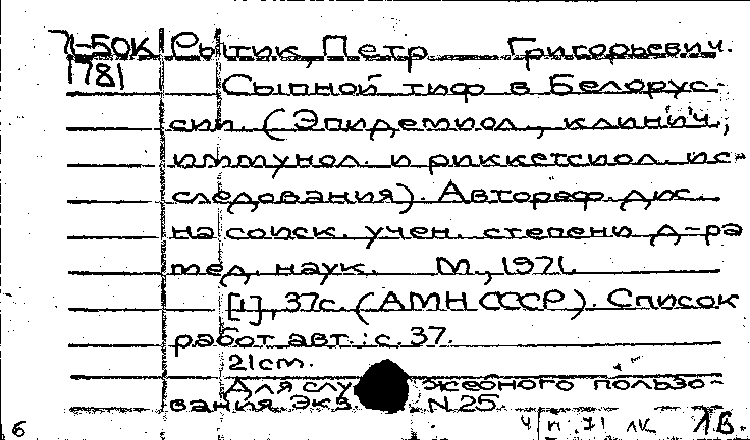 71-50К Рытик, Петр Григорьевич.
1781 Сыпной тиф в Белорус-
сии. (Эпидемиол., клинич.,
иммунол. и риккетсиол. ис-
следования). Автореф. дис.
на соиск. учен. степени д-ра
мед. наук. М., 1971.
[1], 37с. (АМН СССР). Список
работ авт.: с. 37.
21cm.
Для служебного пользо-
вания Экз. N 25.
6 Ч/п .71 ЛК